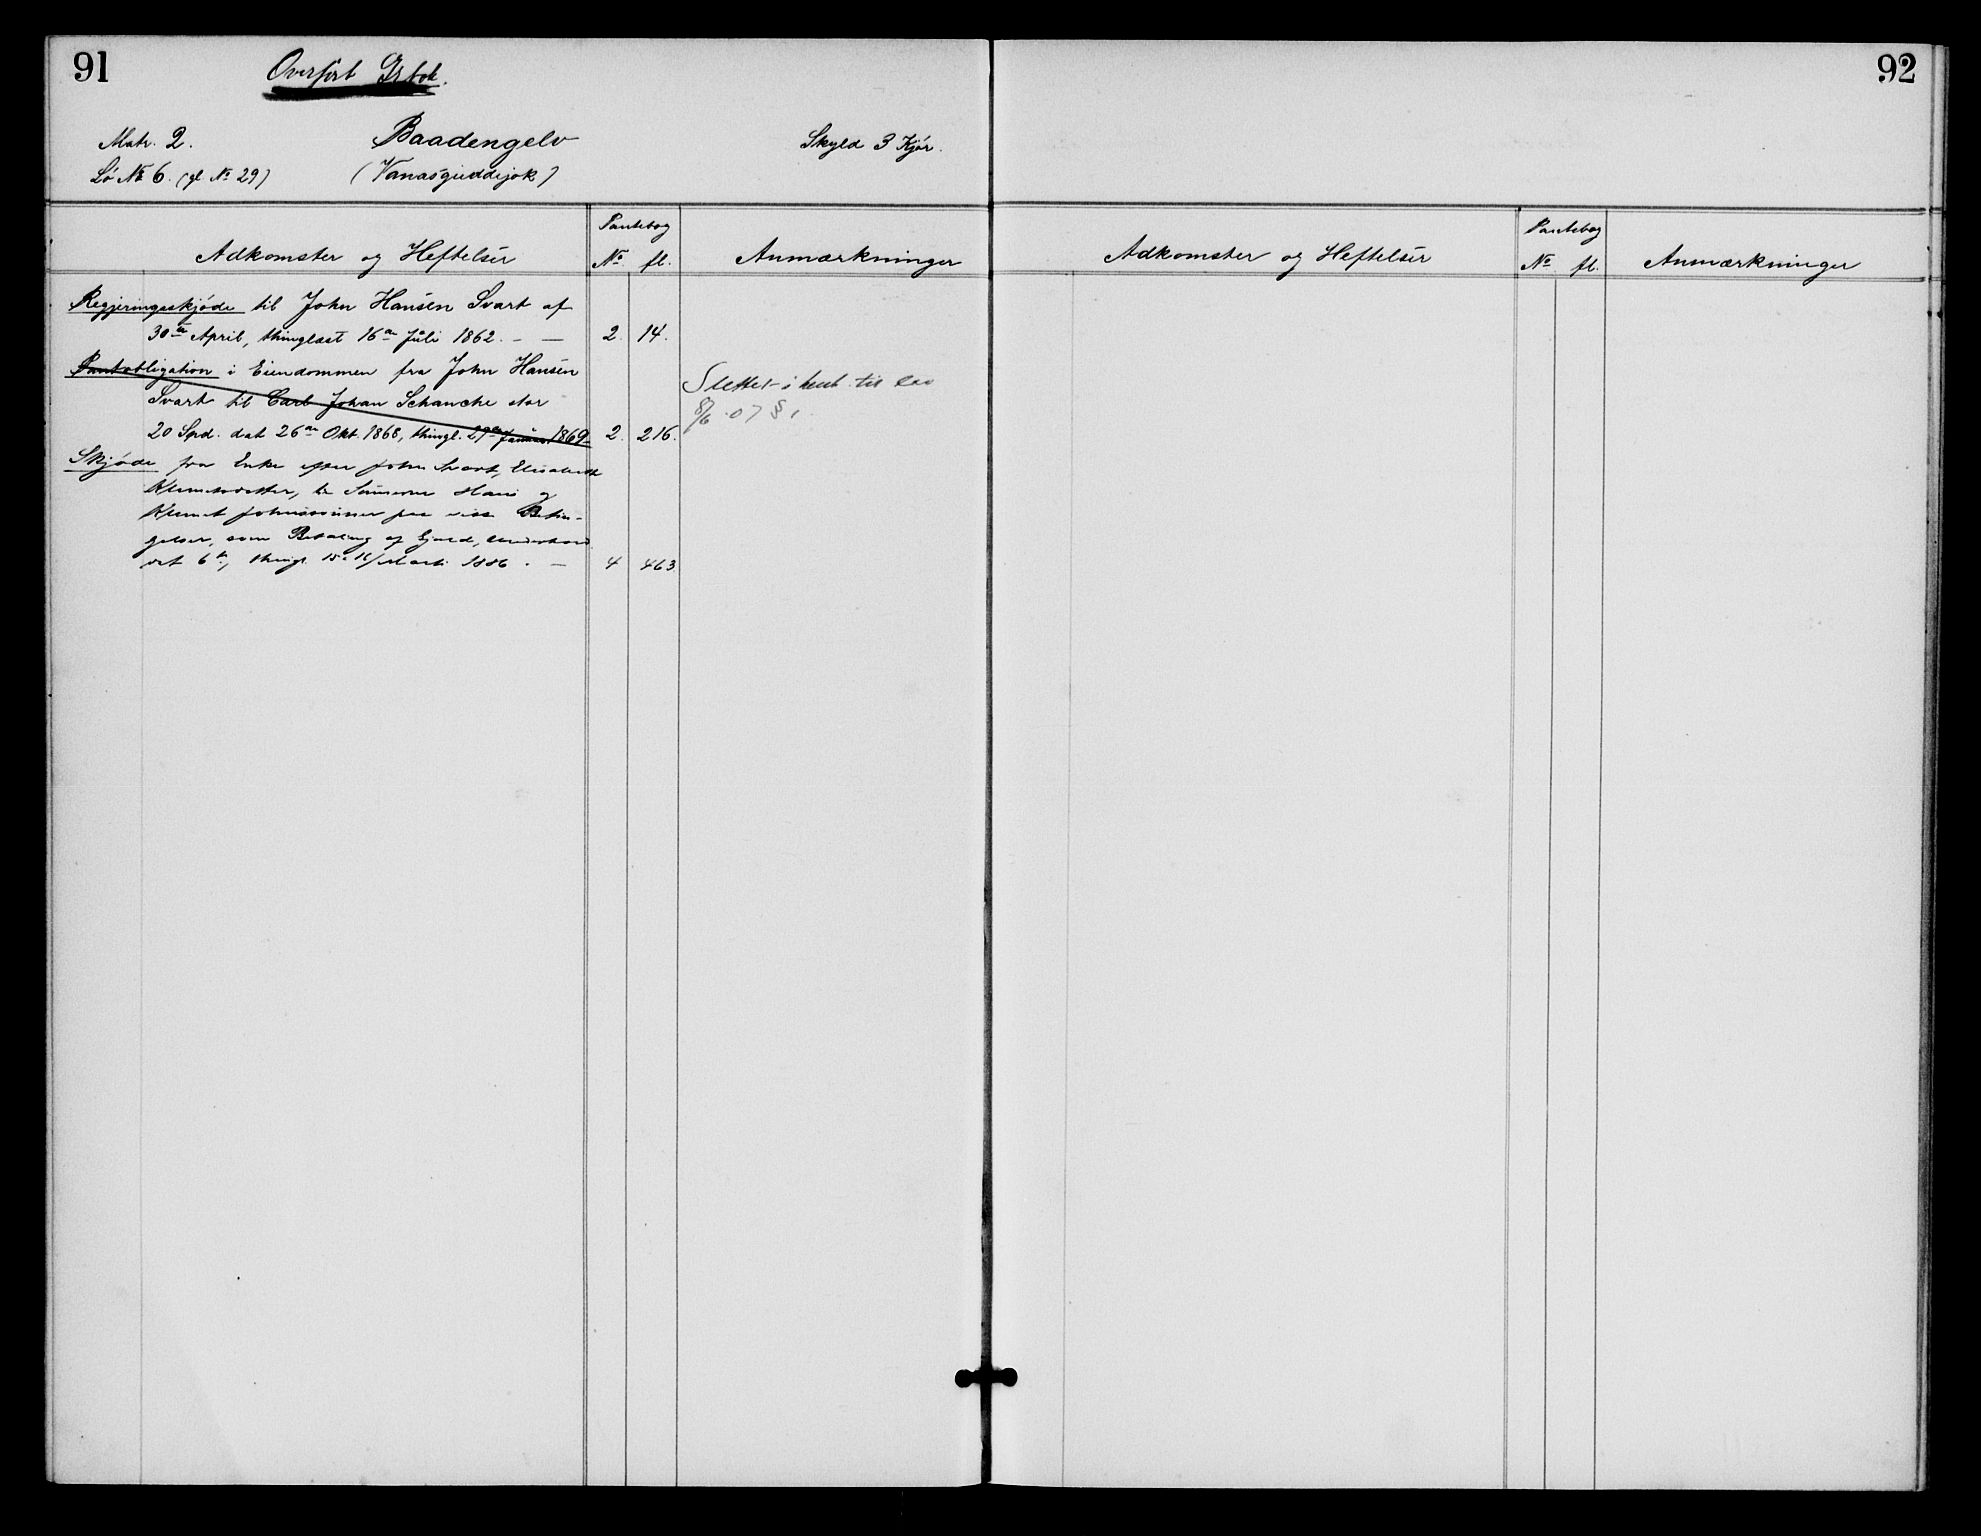 91
Overført Grbok.
92
Matr. 2.
Baadengelv
Skyld 3 Kjør.
Lö № 6. (gl. № 29)
(Vanasguddijok)
Adkomster og Heftelser
Pantebog
№. fl.
Anmærkninger
Adkomster og Heftelser
Pantebog
№ fl.
Anmærkninger
Regjeringsskjøde til John Hansen Svart af
30te April, thinglæst 16de Juli 1862. – — 2. 14.
Pantobligation i Eiendommen fra John Hansen
Svart til Carl Johan Schanche stor
20 Spd. dat 26de Okt. 1868, thingl. 29de Januar 1869. 2. 216.
Slettet i henh. til lov
8/6 07 § 1.
Skjøde fra Enke efter John Svart, Elisabeth
Klemetsdatter, til Sönnerne Hans og
Klemet Johnssønner paa visse Betin-
gelser, som Betaling af Gjæld, Underhold
dat 6te, thingl. 15 Marts 1886. — 4 463